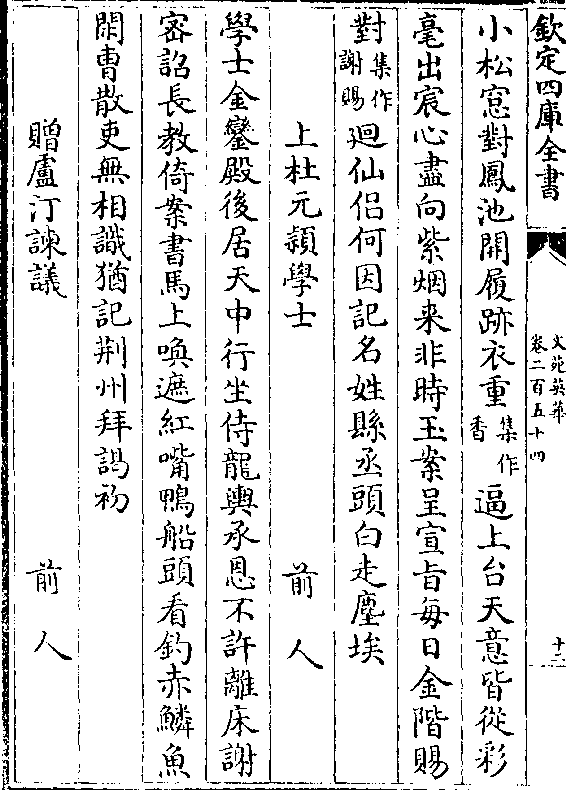 欽定四庫全書
文苑英華
卷二百五十四
十二
小松窓對鳳池開履跡衣重集作香逼上台天意皆從彩
毫出宸心盡向紫烟来非時玉案呈宣旨毎日金階賜
對集作謝賜迴仙侣何因記名姓縣丞頭白走塵埃
上杜元頴學士 前人
學士金鑾殿後居天中行坐侍龍輿承恩不許離床謝
宻詔長教倚案書馬上喚遮紅嘴鴨船頭看釣赤鱗魚
閑曹散吏無相識猶記荆州拜謁初
贈盧汀諫議 前人